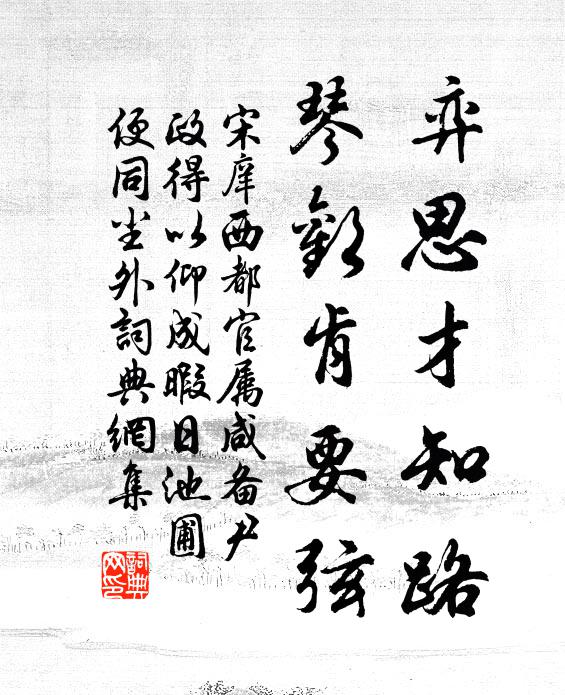 弈思才知路
琴歡肯要弦
宋庠西都官属咸备尹
政得以仰成暇日池圃
便同尘外詞典網集
詞典网印